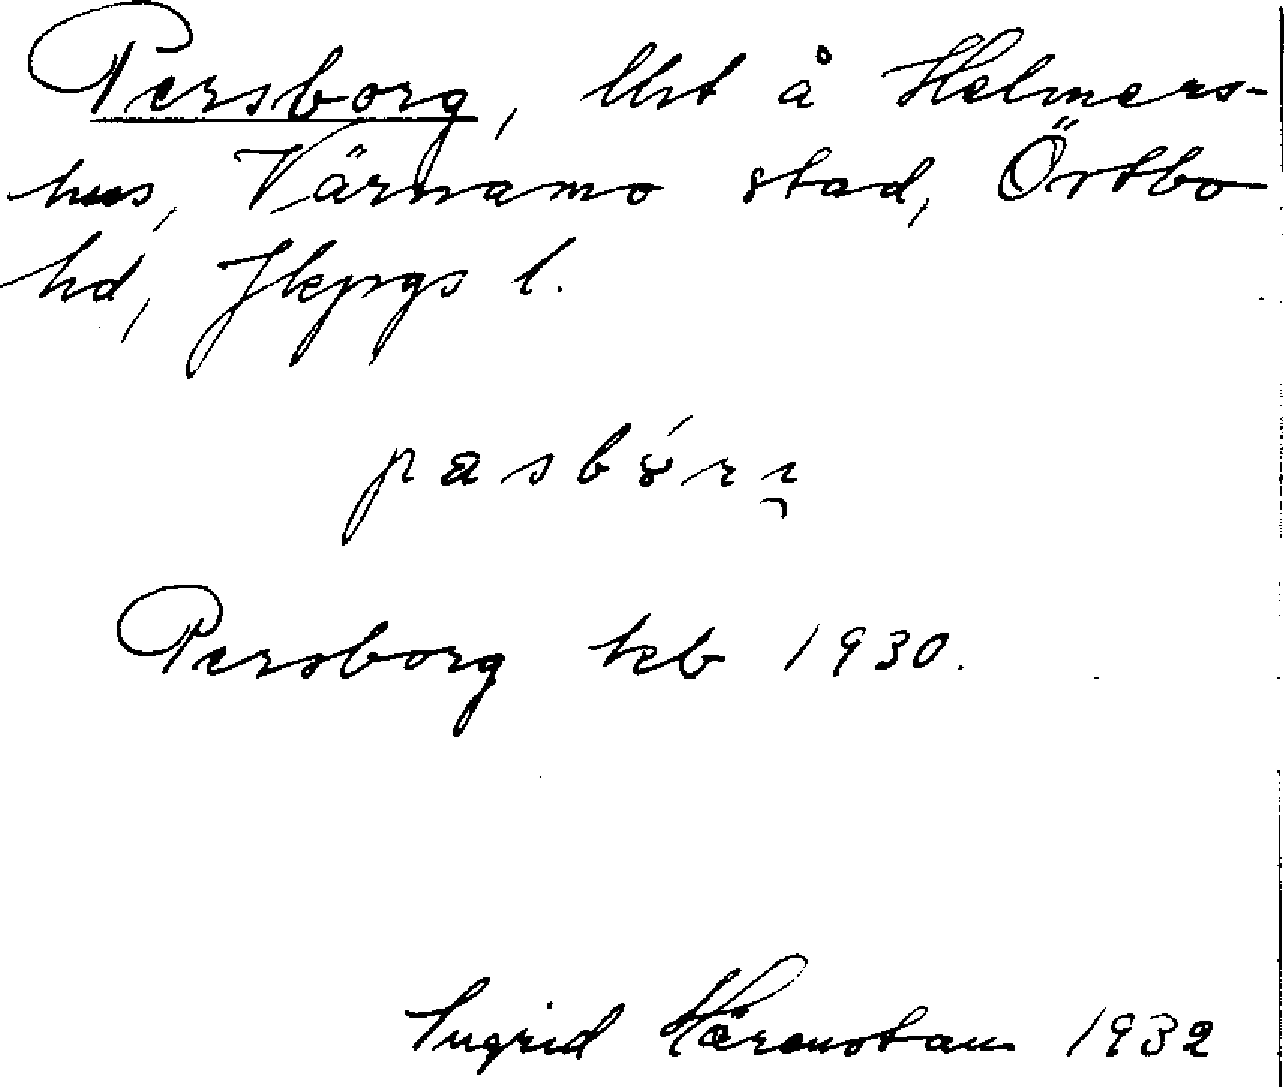 Persborg, lht å Helmers-
hus, Värnamo stad, Östbo
hd, Jkpgs l.
pasbórị
Persborg keb 1930.
Ingrid Härenstam 1932